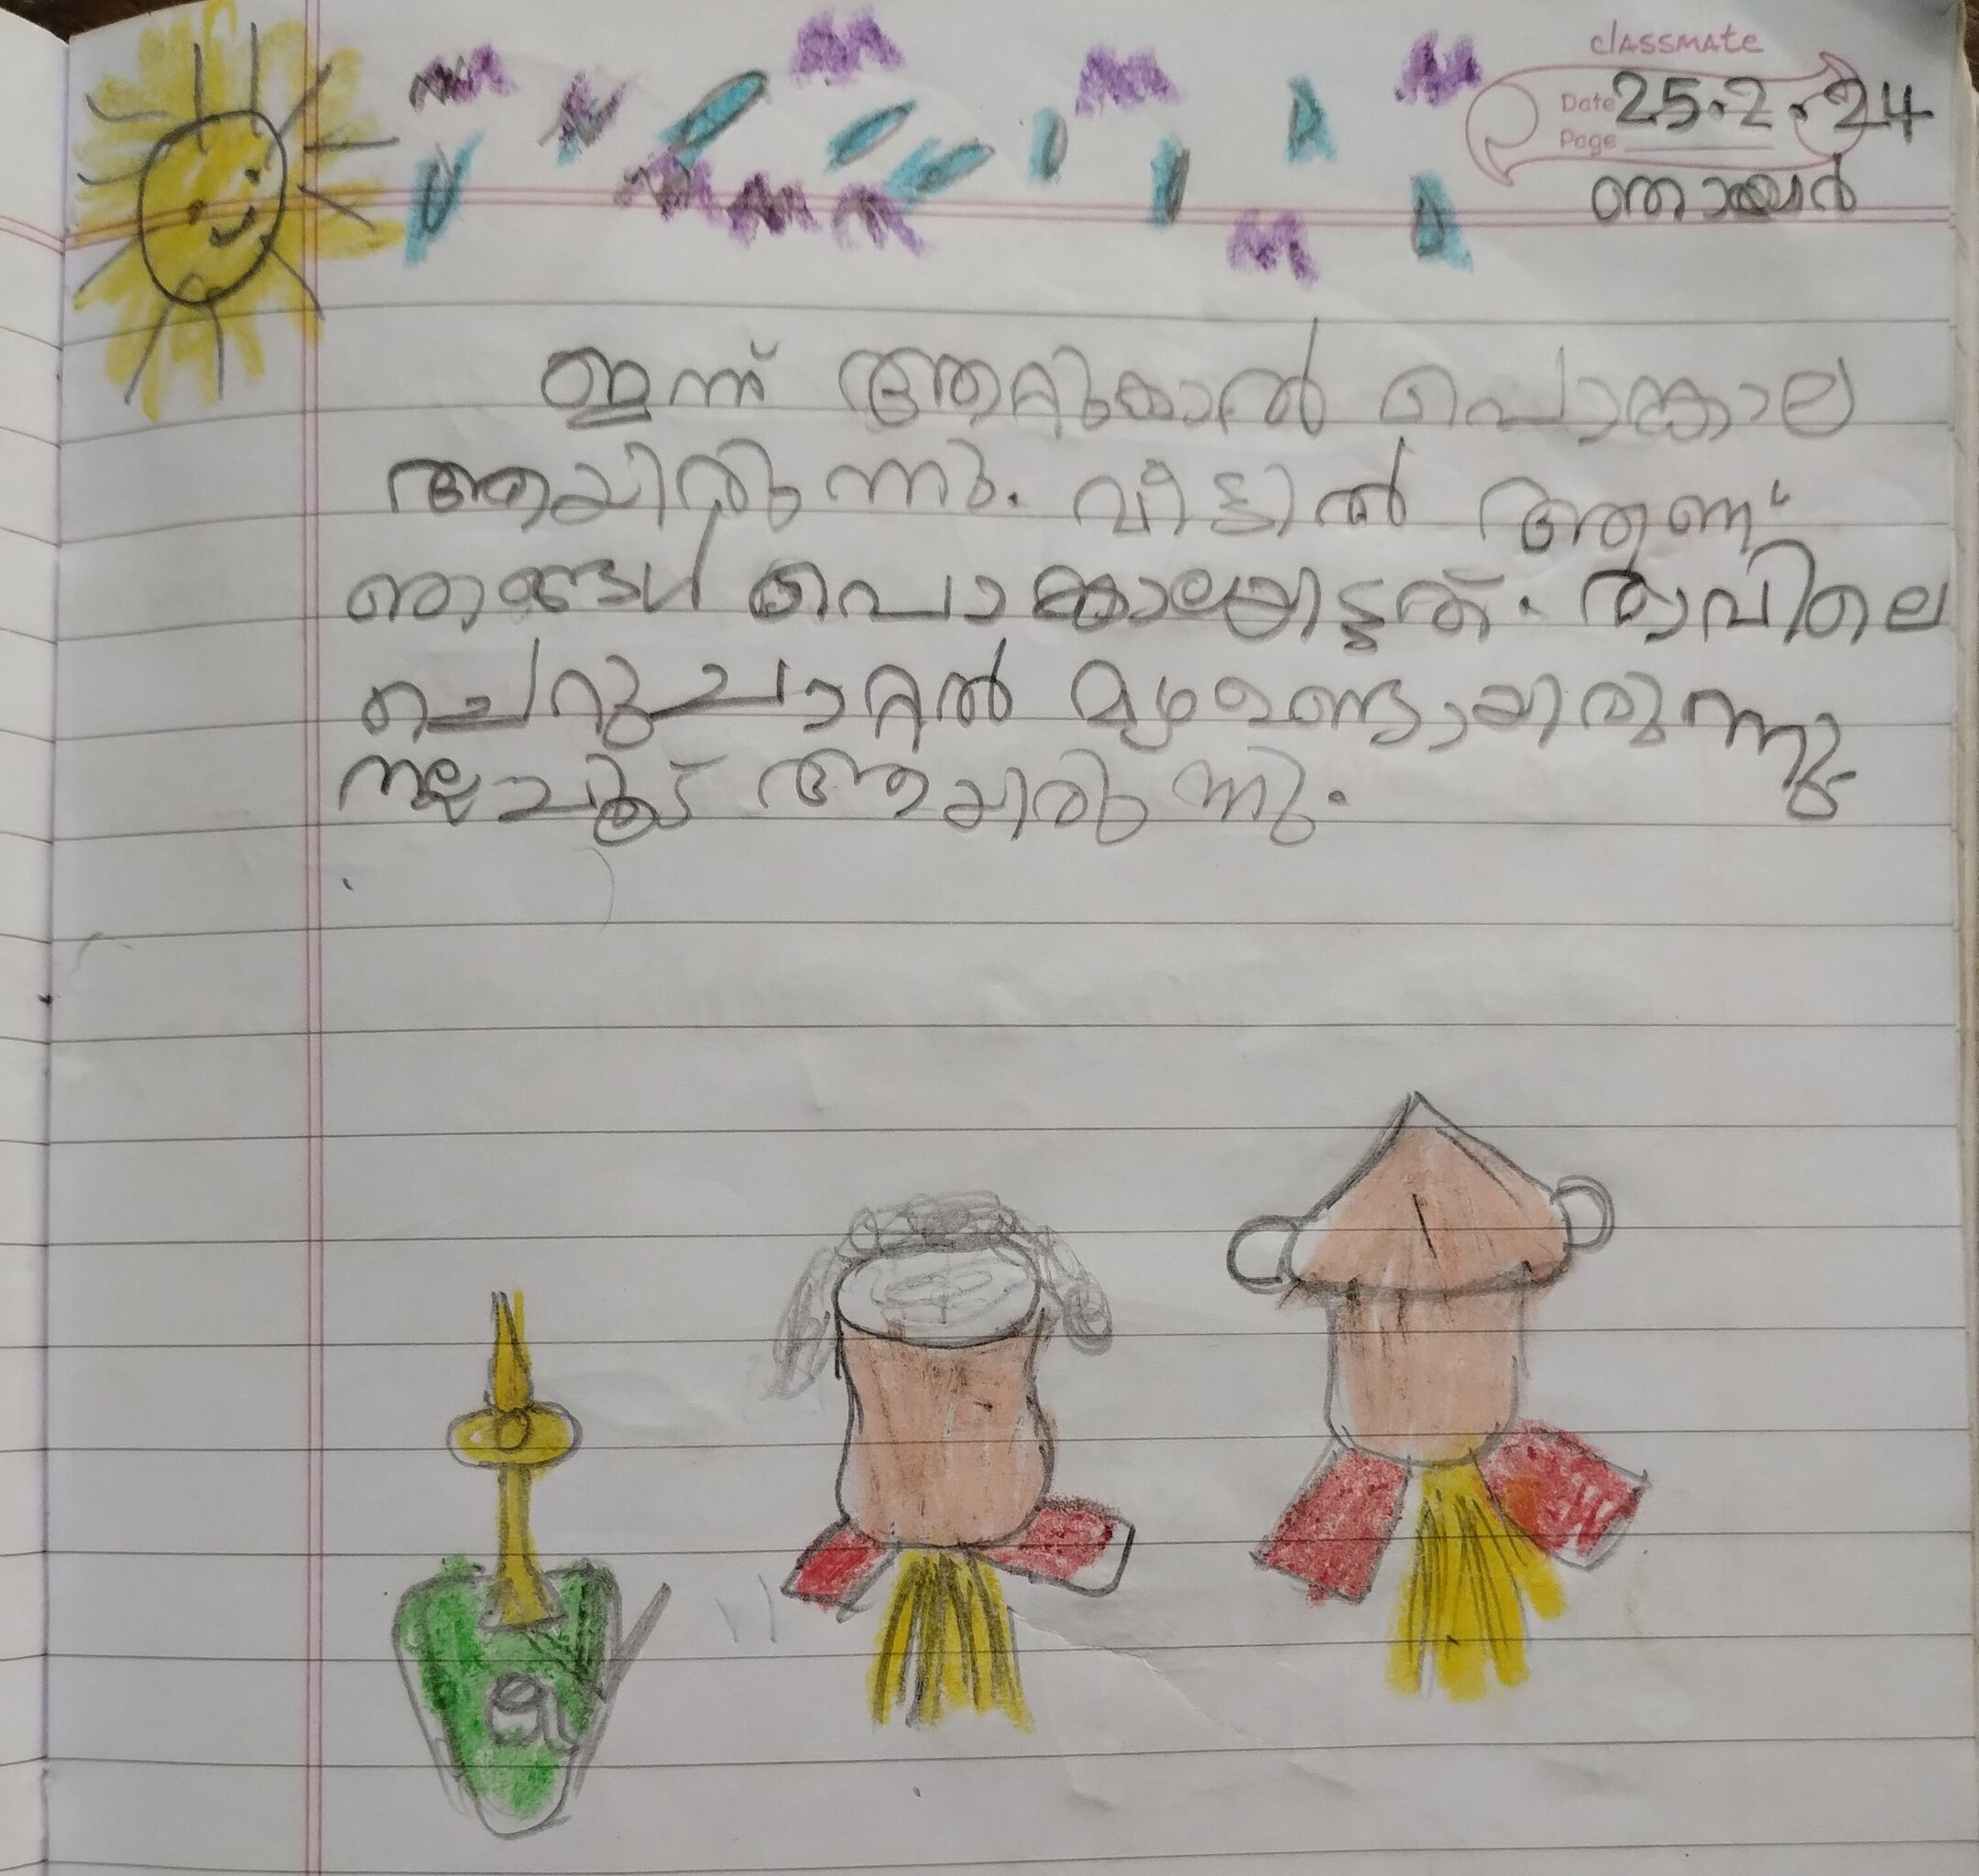 classmate
Date 25.2.24
Page
ഞായർ
ഇന്ന് ആറ്റുകാൽ പൊങ്കാല
ആയിരുന്നു. വീട്ടിൽ ആണ്
ഞങ്ങൾ പൊങ്കാലയിട്ടത്. രാവിലെ
ചെറുചാറ്റൽ മഴഉണ്ടായിരുന്നു
നല്ലചൂട് ആയിരുന്നു.